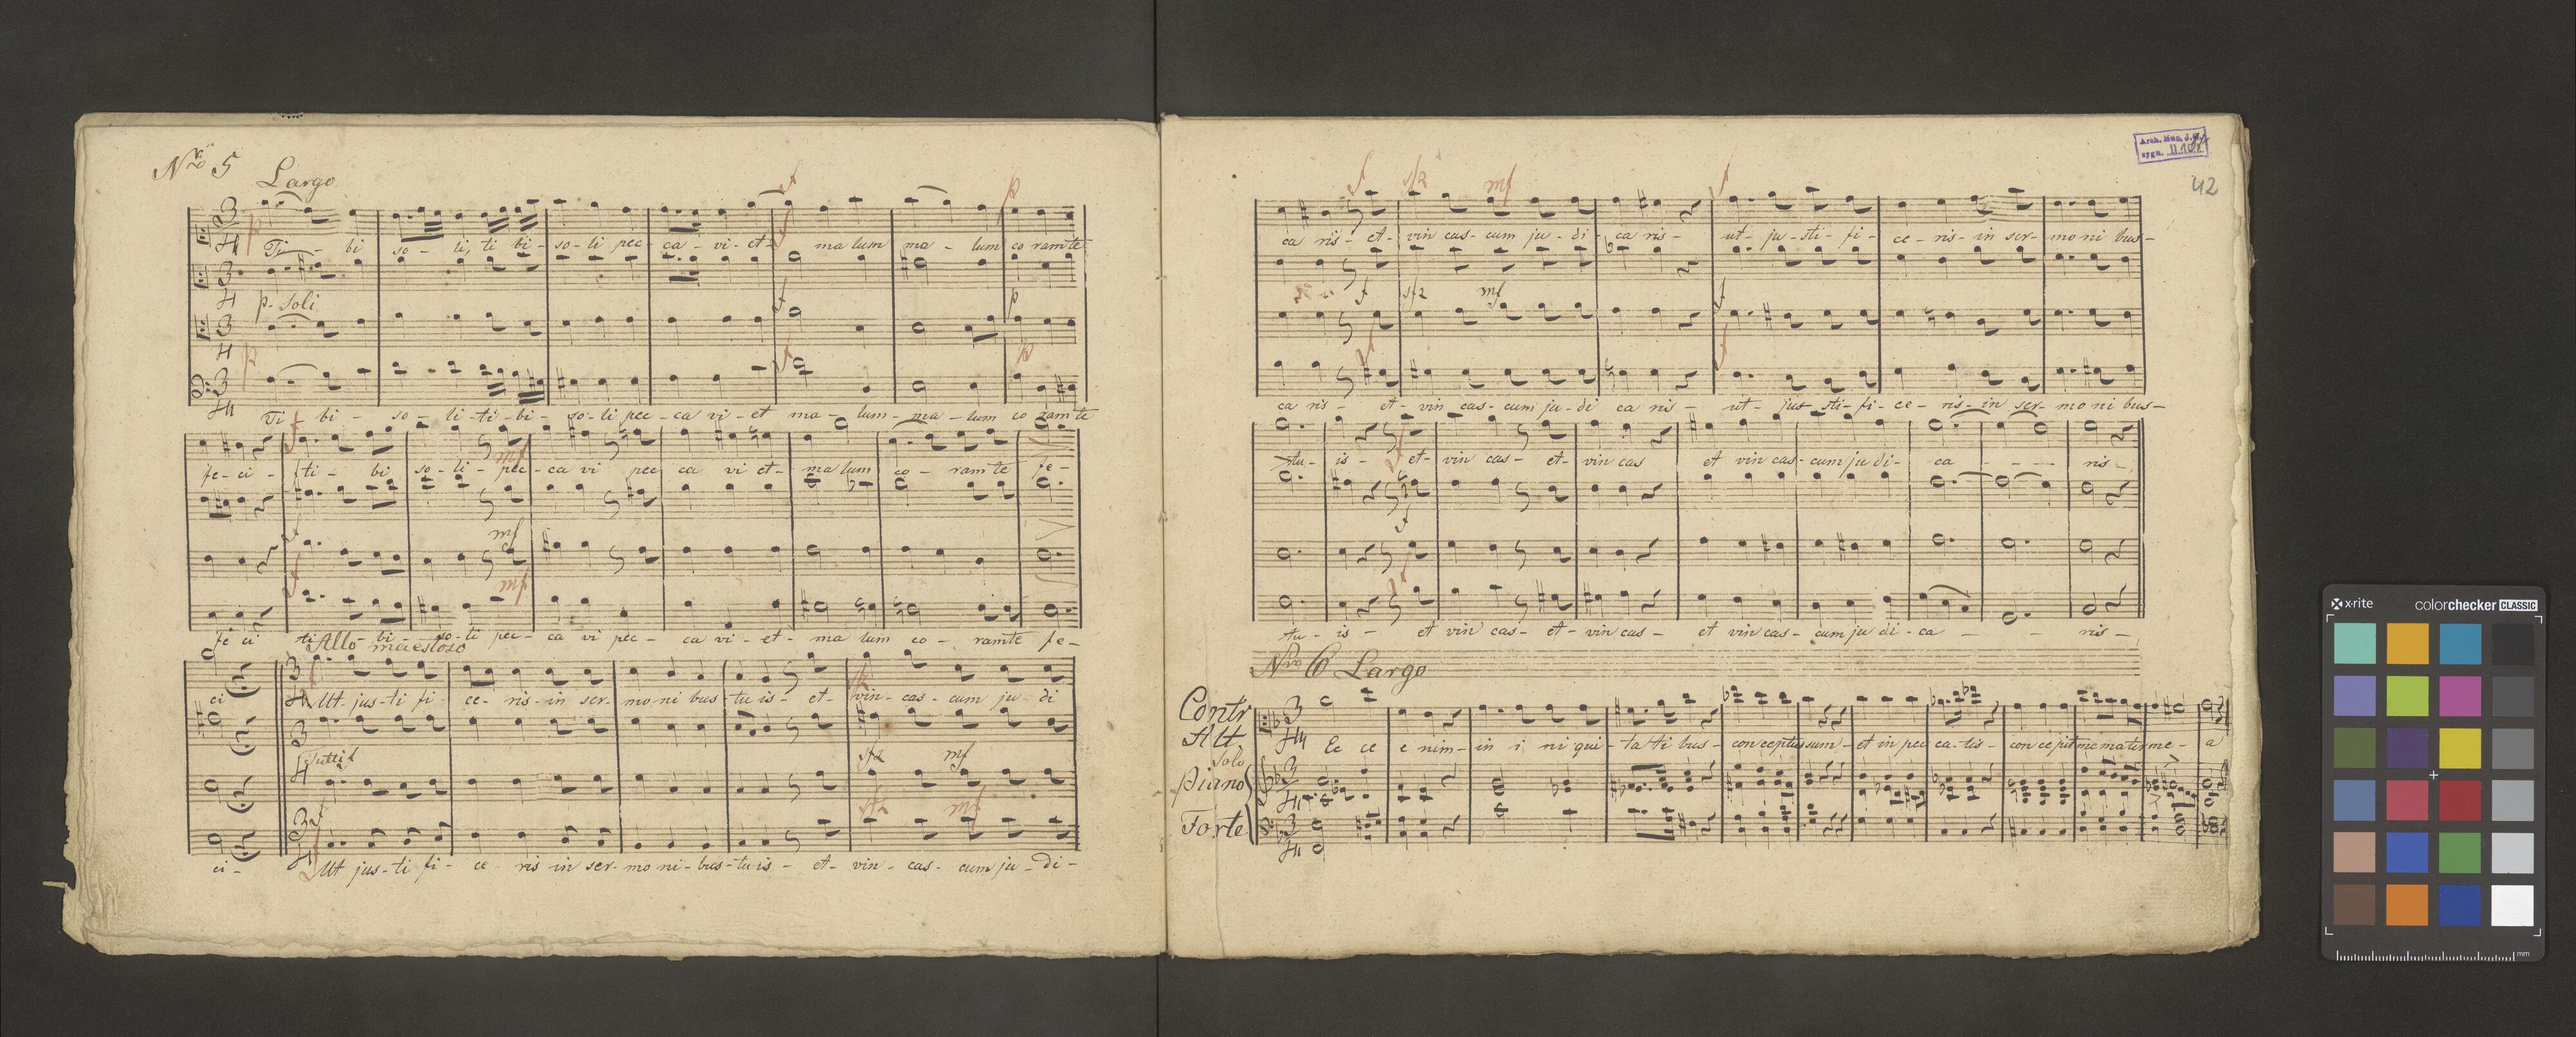 Nro 5 Largo
Ti - bi so - li, ti bi - so - li pec - ca - vi - et - ma lum ma - lum co ram te
p. Soli
Ti - bi - so - li - ti - bi - so - li pec - ca vi - et ma - lum - ma - lum co ram te
fe - ci - ti - bi so - li - pec - ca vi pec ca vi et - ma lum co - ram te fe -
mf
fe ci ti - bi - so - li pec - ca vi pec - ca vi - et - ma lum co - ram te fe -
Allo maestoso
ci Ut - jus - ti fi - ce - ris - in ser - mo ni bus - tu is - et vin - cas - cum ju - di
Tutti f sfz mf
ci - Ut jus - ti fi - ce ris in ser - mo ni - bus - tu is - et - vin - cas - cum ju - di -
Arch. Muz. J.G.
sygn. II
42
f sfz mf f
ca ris - et - vin cas - cum ju - di - ca ris - ut - ju - sti - fi - ce - ris - in ser - mo ni bus -
f sfz mf f
ca ris - et - vin cas - cum ju - di ca ris - ut - jus sti - fi - ce - ris - in ser - mo ni bus -
tu - is - et - vin cas - et - vin cas et vin cas - cum ju di - ca - - - ris -
tu - is - et vin cas - et - vin cas - et vin cas - cum ju di - ca - - ris -
Nro 6 Largo
Contr
Alt
Ec ce e nim - in i ni qui - ta ti bus - con ceptus sum - et in pec ca - tis - con ce pit me mater me - a
Solo
Piano
Forte